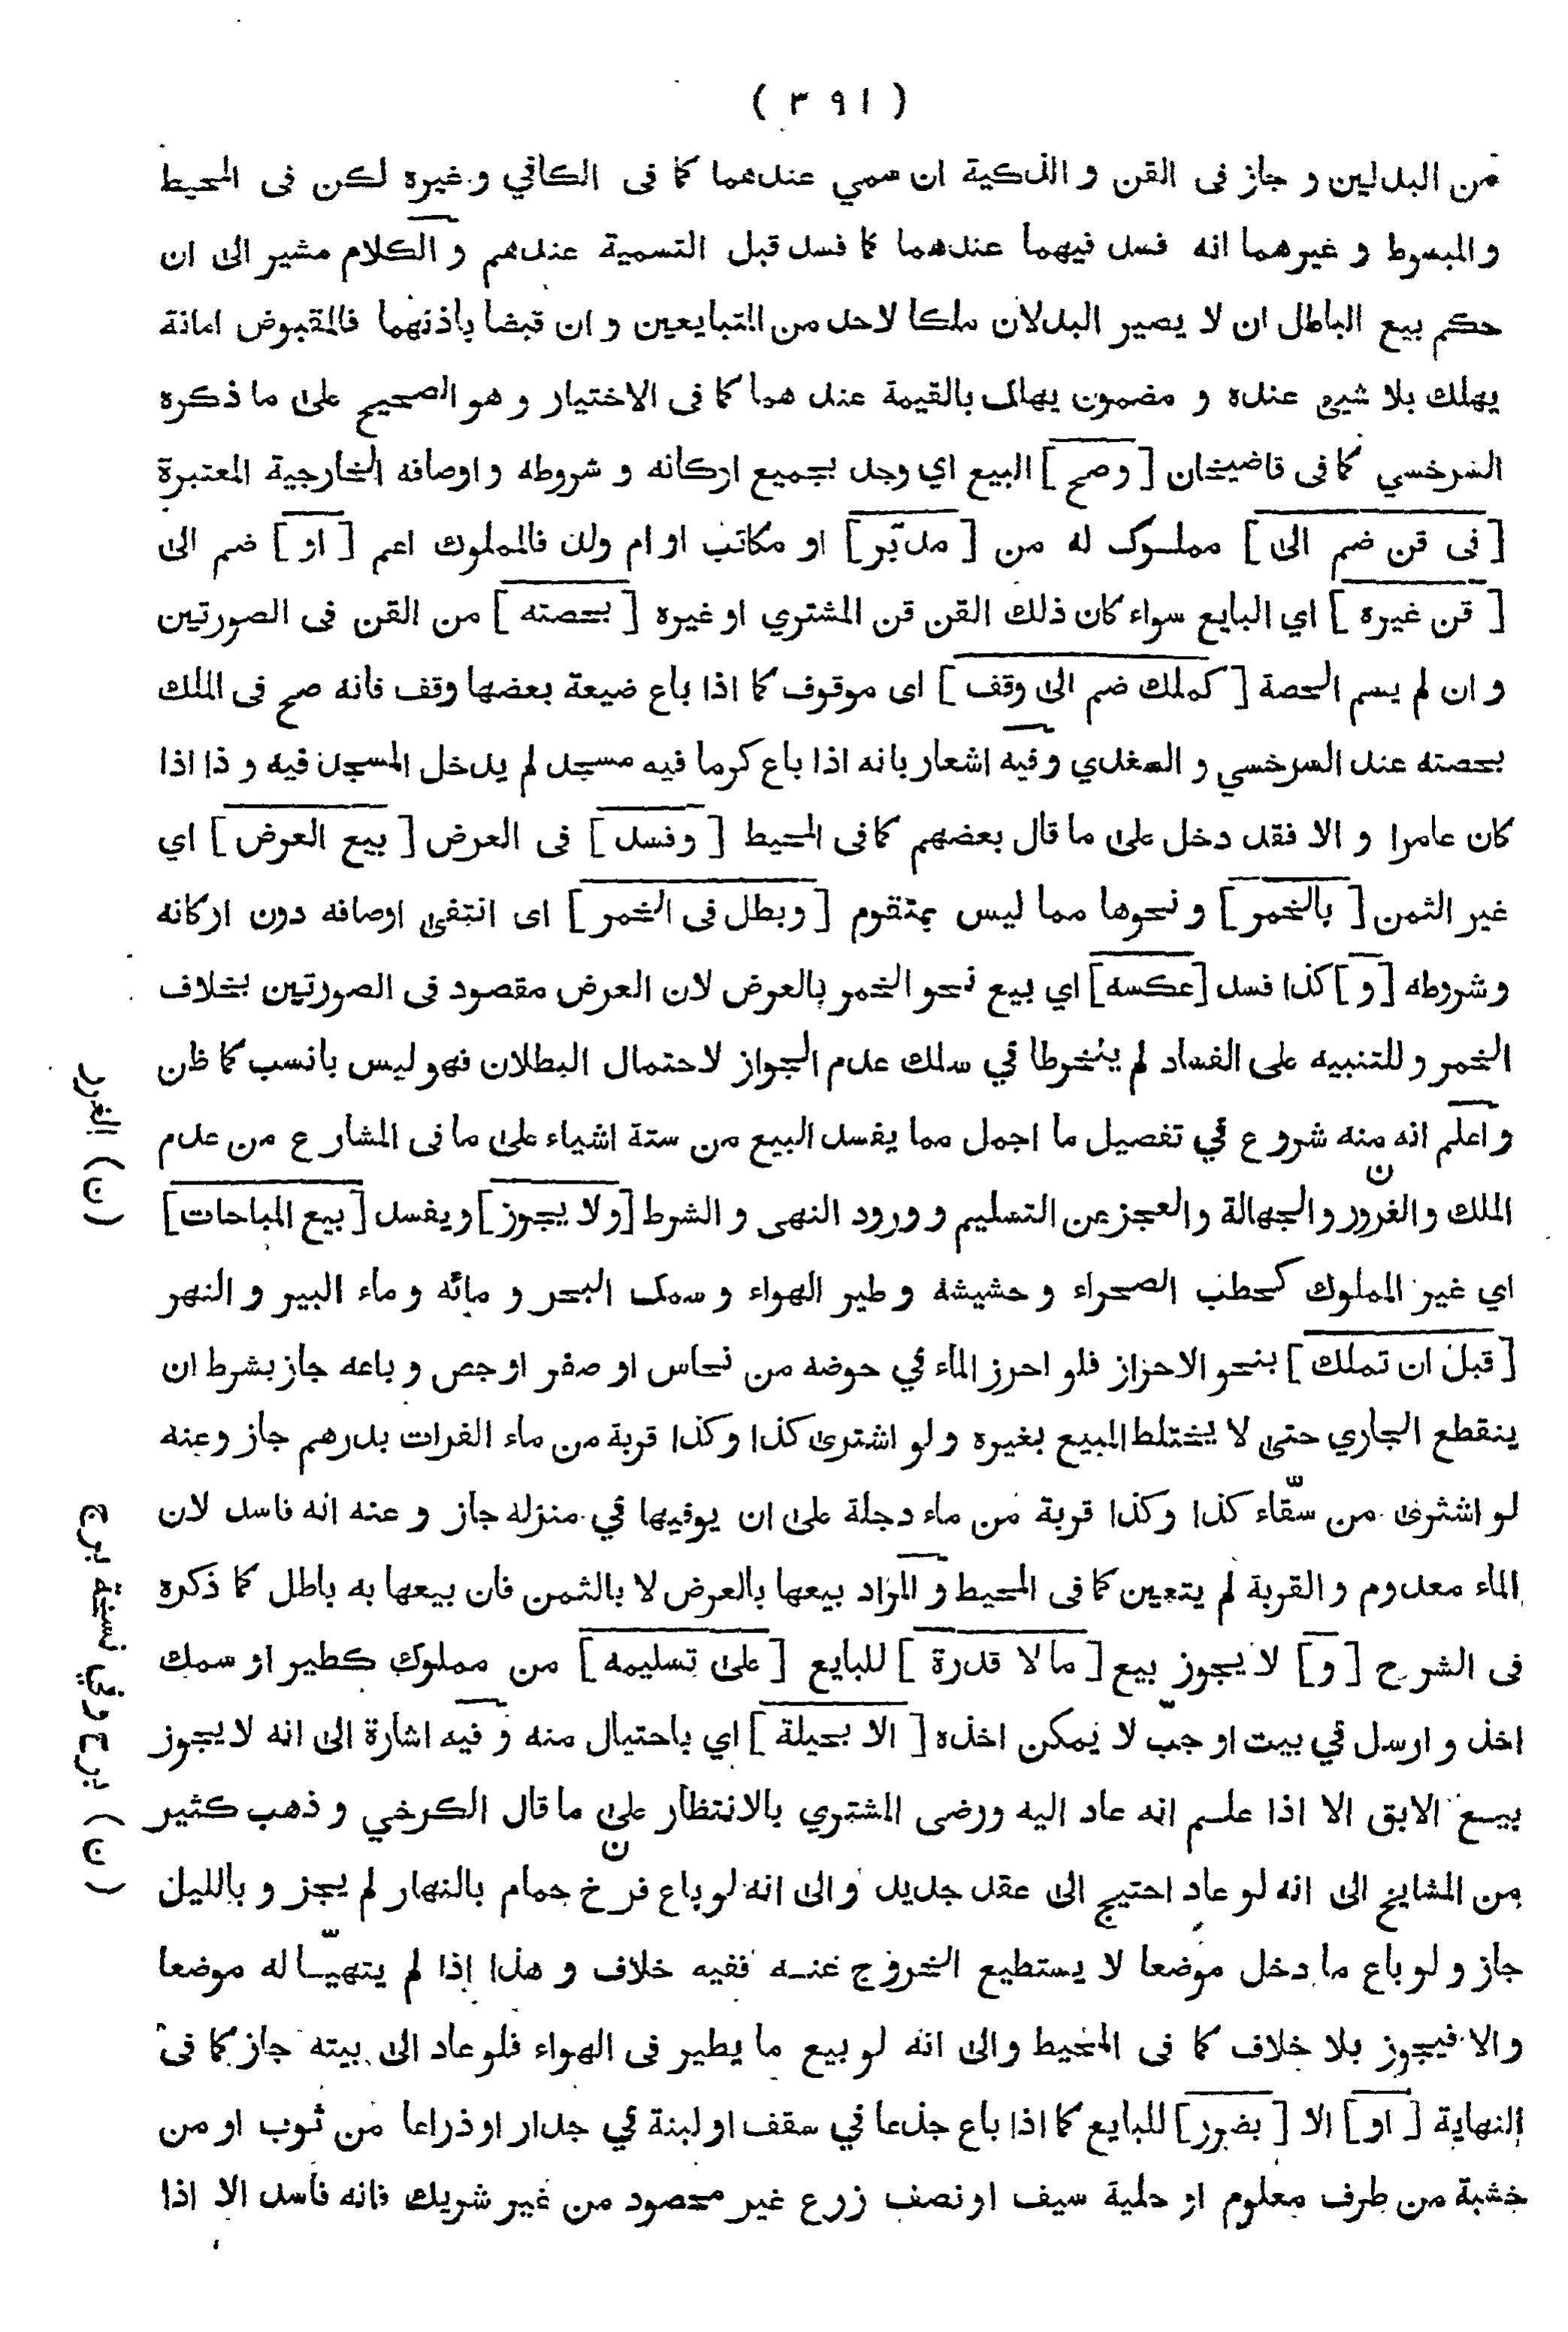 ( ٣٩١ )
من البدلين و جاز فى القن و الذكية ان سمي عندهما كما فى الكافي و غيره لكن فى المحيط
و المبسوط و غيرهما انه فسد فيهما عندهما كما فسد قبل التسمية عندهم و الكلام مشير الى ان
حكم بيع الباطل ان لا يصير البدلان ملكا لاحد من المتبايعين و ان قبضا باذنهما فالمقبوض امانة
يهلك بلا شيئ عنده و مضمون يهلك بالقيمة عند هما كما فى الاختيار و هو الصحيح على ما ذكره
السرخسي كما فى قاضيخان [ وصح ] البيع اي وجد بجميع اركانه و شروطه و اوصافه الخارجية المعتبرة
[ فى قن ضم الى ] مملوك له من [ مدبّر ] او مكاتب او ام ولد فالمملوك اعم [ او ] ضم الى
[ قن غيره ] اي البايع سواء كان ذلك القن قن المشتري او غيره [ بحصته ] من القن فى الصورتين
و ان لم يسم الحصة [ كملك ضم الى وقف ] اى موقوف كما اذا باع ضيعة بعضها وقف فانه صح فى الملك
بحصته عند السرخسي و السغدي و فيه اشعار بانه اذا باع كرما فيه مسجد لم يدخل المسجد فيه و ذا اذا
كان عامرا و الا فقد دخل على ما قال بعضهم كما فى المحيط [ و فسد ] فى العرض [ بيع العرض ] اي
غير الثمن [ بالخمر ] و نحوها مما ليس بمتقوم [ و بطل فى الخمر ] اى انتفى اوصافه دون اركانه
و شروطه [ و ] كذا فسد [ عكسه ] اي بيع نحو الخمر بالعرض لان العرض مقصود فى الصورتين بخلاف
الخمر و للتنبيه على الفساد لم ينخرطا في سلك عدم الجواز لاحتمال البطلان فهو ليس بانسب كما ظن
و اعلم انه منه شروع في تفصيل ما اجمل مما يفسد البيع من ستة اشياء على ما فى المشارع من عدم
الملك و الغرور و الجهالة و العجز عن التسليم و ورود النهى و الشرط [ ولا يجوز ] و يفسد [ بيع المباحات ]
اي غير المملوك كحطب الصحراء و حشيشه و طير الهواء و سمك البحر و مائه و ماء البير و النهر
[ قبل ان تملك ] بنحو الاحراز فلو احرز الماء في حوضه من نحاس او صفر او جص و باعه جاز بشرط ان
ينقطع الجاري حتى لا يختلط المبيع بغيره و لو اشترى كذا وكذا قربة من ماء الفرات بدرهم جاز وعنه
لو اشترى من سقّاء كذا وكذا قربة من ماء دجلة على ان يوفيها في منزله جاز و عنه انه فاسد لان
الماء معدوم و القربة لم يتعين كما فى المحيط و المراد بيعها بالعرض لا بالثمن فان بيعها به باطل كما ذكره
فى الشرح [ و ] لا يجوز بيع [ ما لا قدرة ] للبايع [ على تسليمه ] من مملوك كطير او سمك
اخذ و ارسل في بيت او جبّ لا يمكن اخذه [ الا بحيلة ] اي باحتيال منه و فيه اشارة الى انه لا يجوز
بيع الابق الا اذا علم انه عاد اليه ورضى المشتري بالانتظار على ما قال الكرخي و ذهب كثير
من المشايخ الى انه لو عاد احتيج الى عقد جديد و الى انه لو باع فرخ حمام بالنهار لم يجز و بالليل
جاز و لو باع ما دخل موضعا لا يستطيع الخروج عنه ففيه خلاف و هذا إذا لم يتهيّا له موضعا
والا فيجوز بلا خلاف كما فى المحيط والى انه لو بيع ما يطير فى الهواء فلو عاد الى بيته جاز كما فى
النهاية [ او ] الا [ بضرر ] للبايع كما اذا باع جذعا في سقف او لبنة في جدار او ذراعا من ثوب او من
خشبة من طرف معلوم او حلية سيف او نصف زرع غير محصود من غير شريك فانه فاسد الا اذا
( ن ) الغرر
( ن ) برج وفي نسخة برج